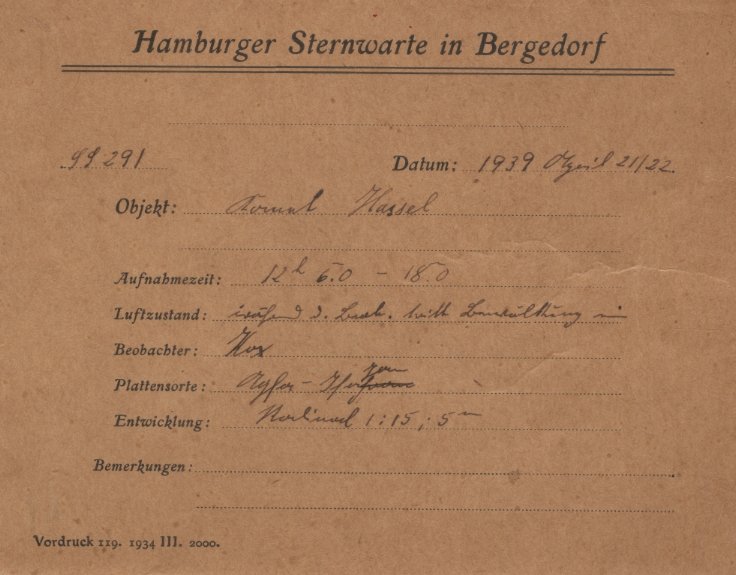 Hamburger Sternwarte in Bergedorf
99 291 Datum: 1939 April 21/22
Objekt: Komet Hassel
Aufnahmezeit: 12h 6.0 - 18.0
Luftzustand: während d. Beob. tritt Bewölkung ein
Beobachter: Kox
Plattensorte: Agfa -
Entwicklung: Rodinal 1:15; 5m
Bemerkungen:
Vordruck 119. 1934 III. 2000.